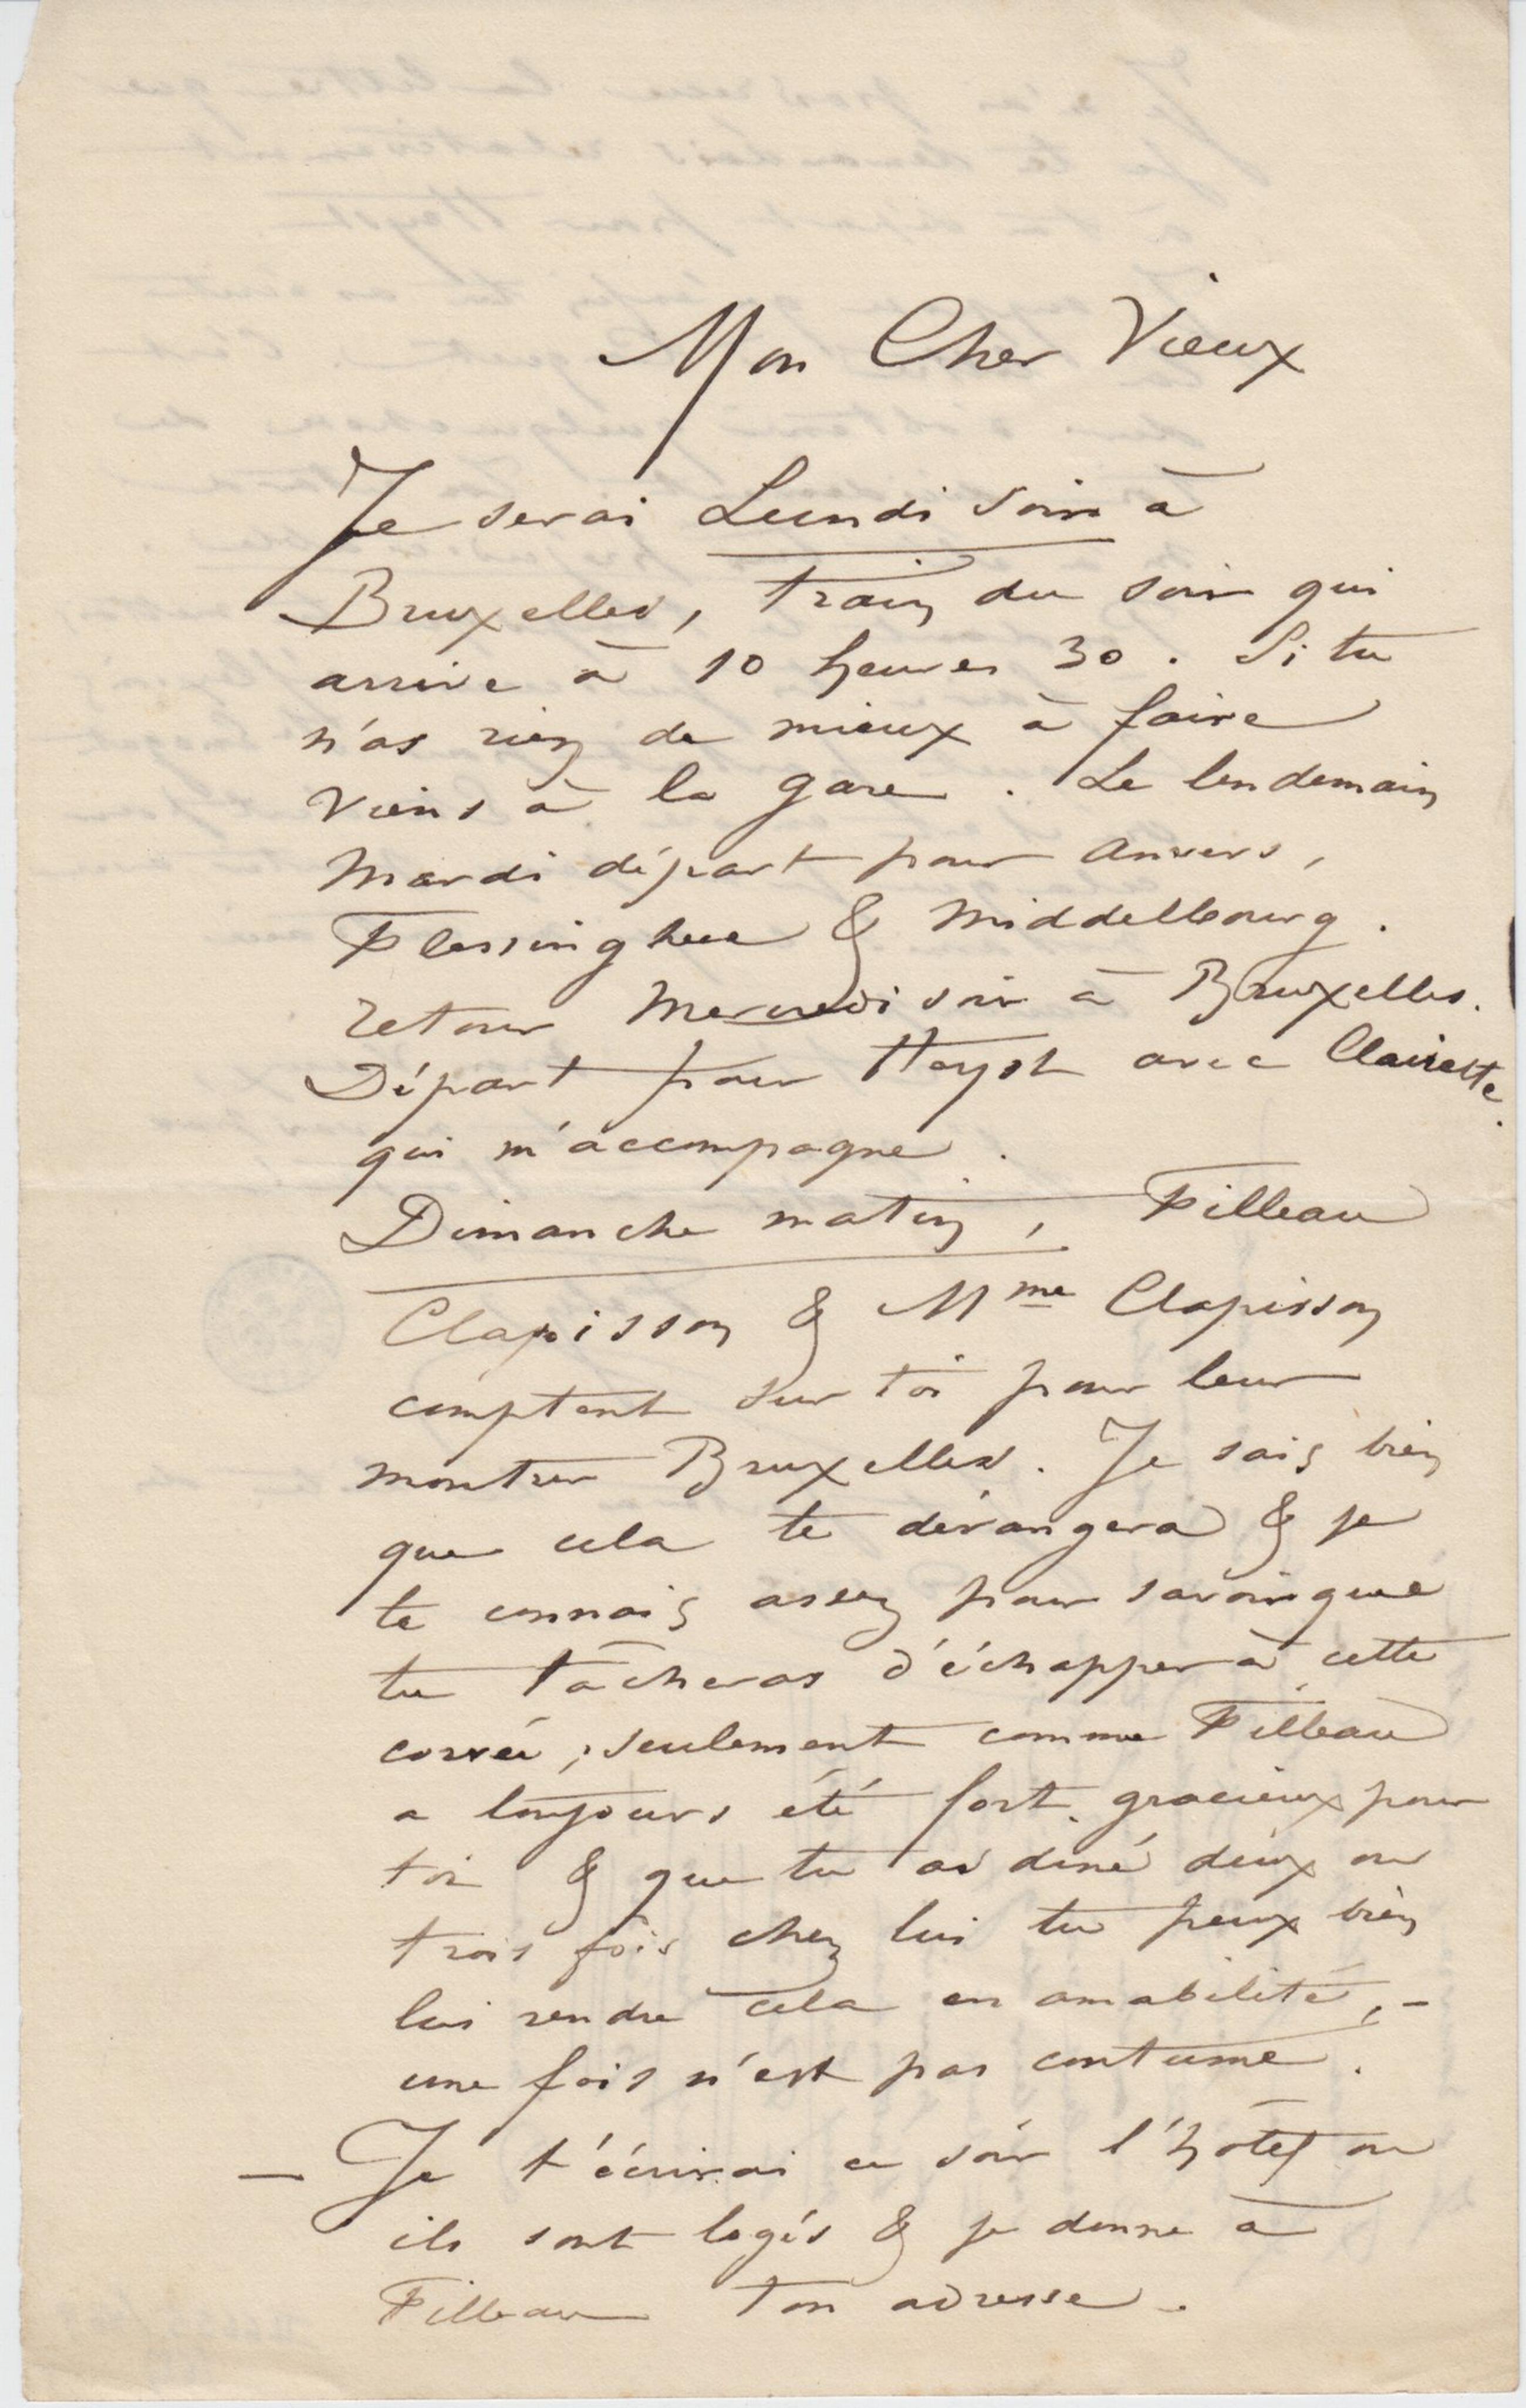 Mon Cher Vieux
Je serai Lundi soir à
Bruxelles, train du soir qui
arrive à 10 heures 30. Si tu
n'as rien de mieux à faire
viens à la gare. Le lendemain
Mardi départ pour Anvers,
Flessinghue & Middelbourg.
retour Mercredi soir à Bruxelles.
Départ pour Heyst avec Clairette.
qui m'accompagne.
Dimanche matin, Filleau
Clapisson & Mme Clapisson
comptent sur toi pour leur
montrer Bruxelles. Je sais bien
que cela te dérangera & je
te connais assez pour savoir que
tu tâcheras d'échapper à cette
corvée, seulement comme Filleau
a toujours été fort gracieux pour
toi & que tu as diné deux ou
trois fois chez lui tu peux bien
lui rendre cela en amabilité, -
une fois n'est pas coutume.
— Je t'écrirai ce soir l'hôtel ou
ils sont logés & je donne à
Filleau ton adresse.